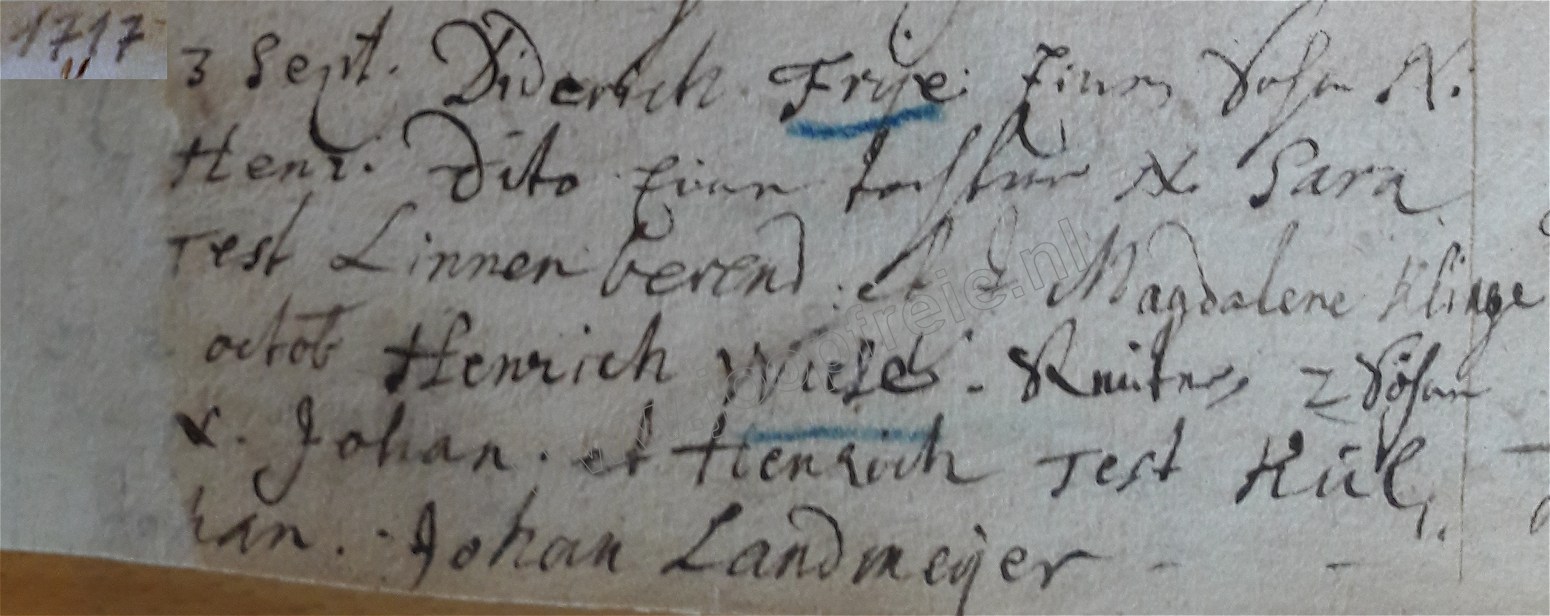 1717
3 Sept. Diderich Frye. Einen Sohn N.
Henr. Dito Eine tochter N. Sara
Test Linnen berend. et Magdalene Klinge
octob Henrich Wiese. 2 Söhne
N. Johan. et Henrich Test Kül,
han. Johan Landmeyer